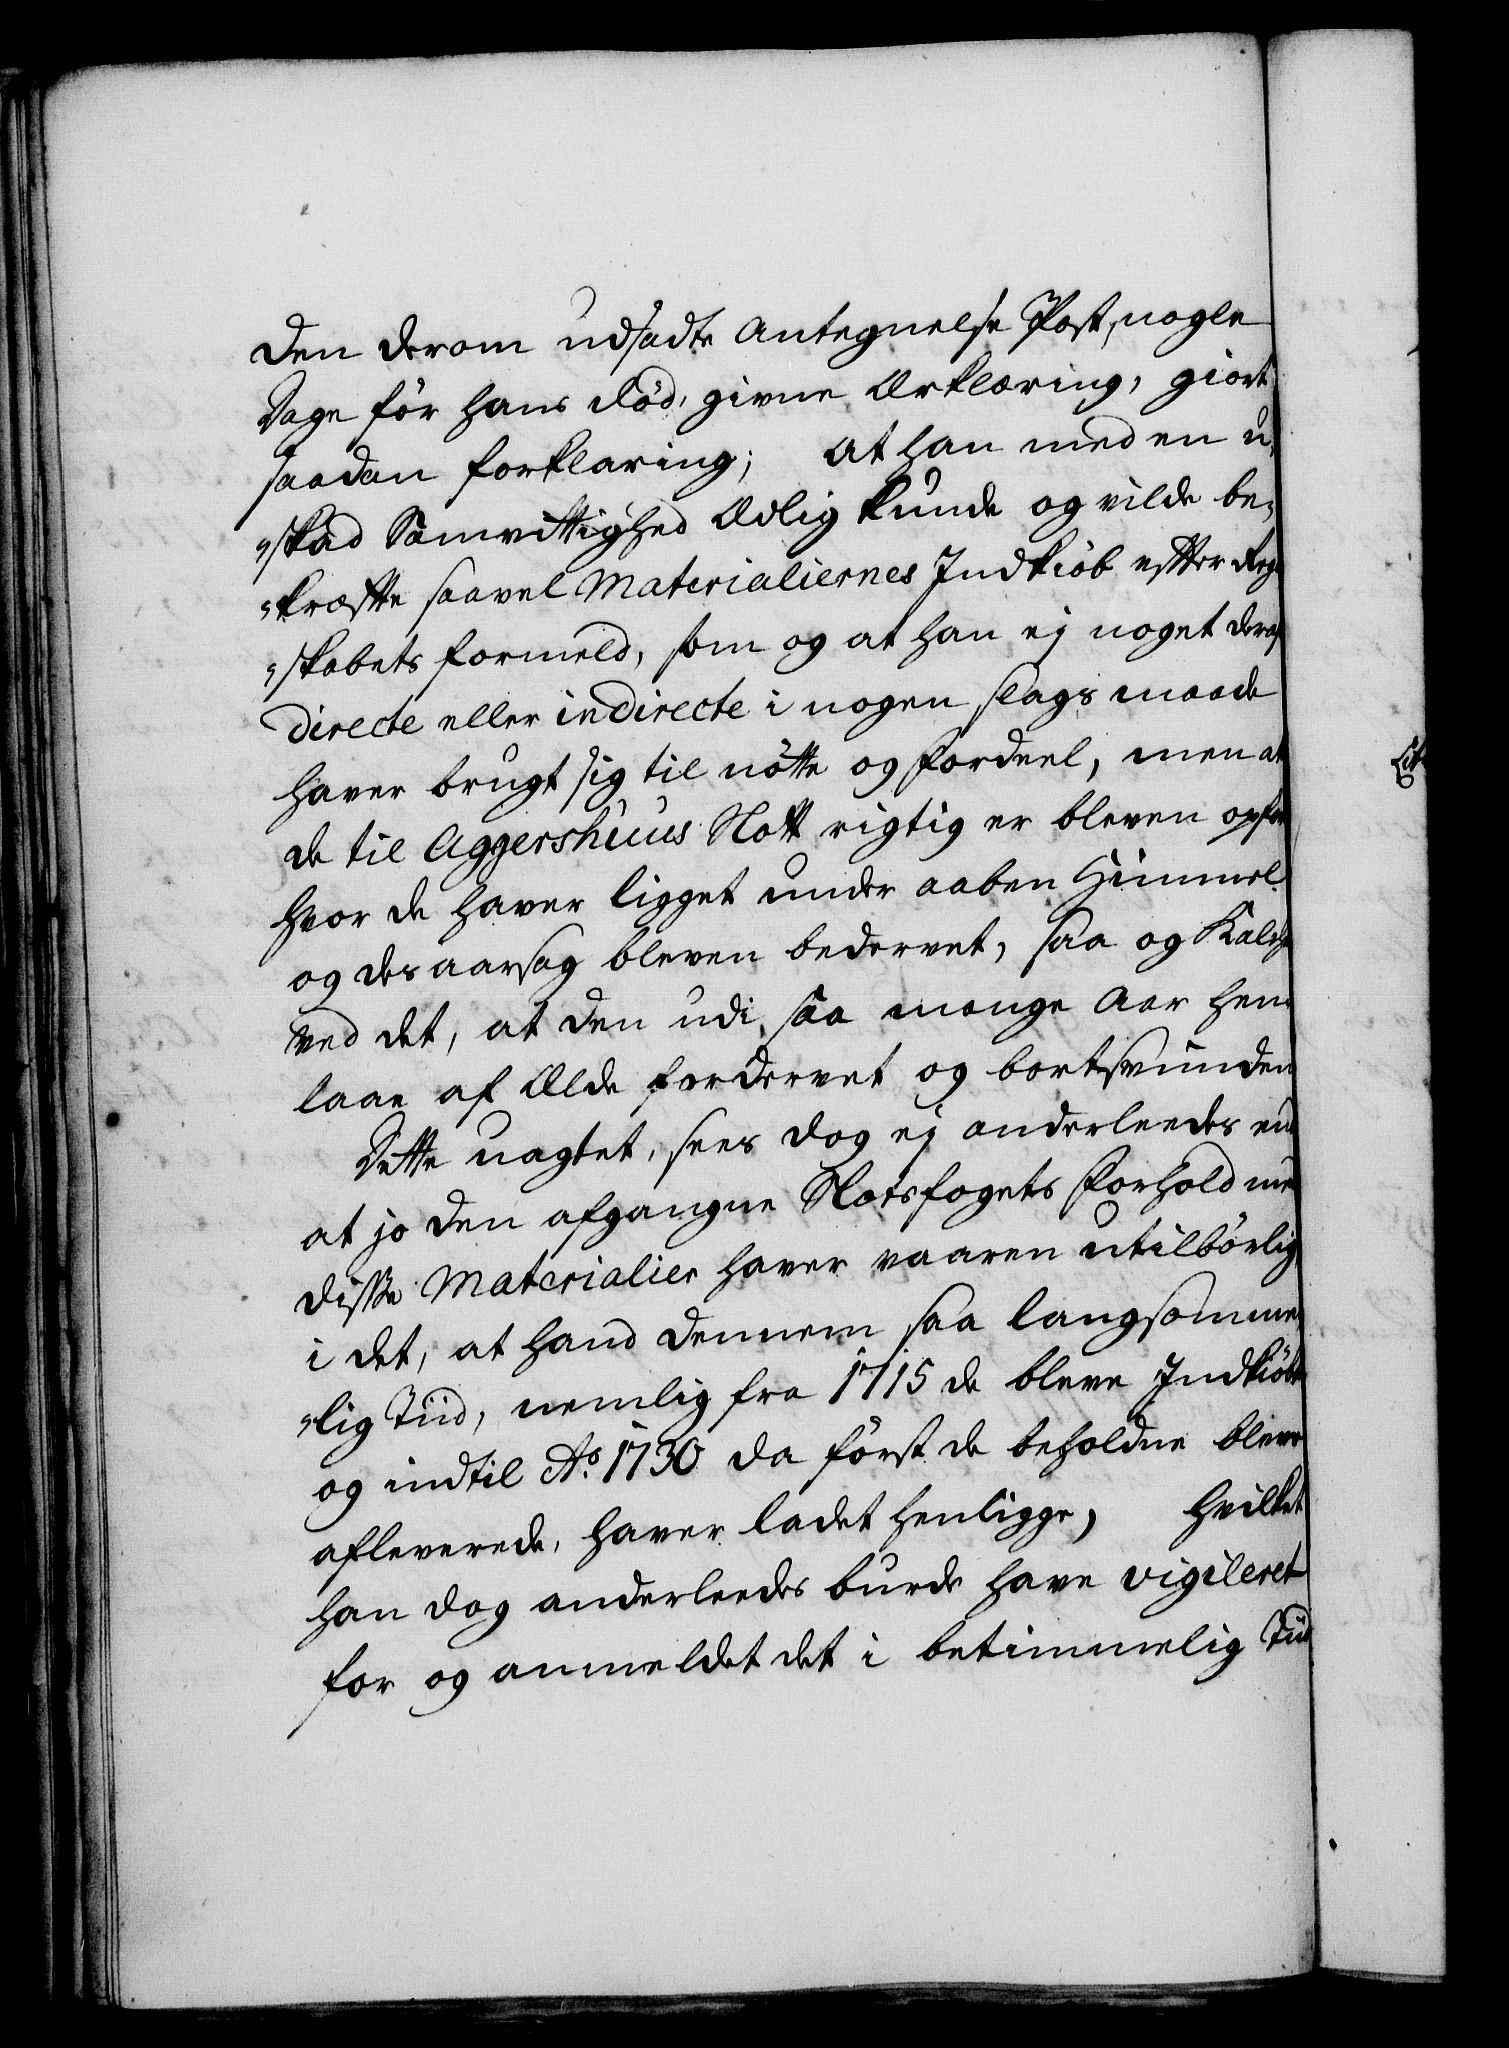 den derom udsadte Antegnelse Post, nogle
Dage för hans död, givne Erklæring, giort
saadan forklaring; At han med en u,
"skad Samvittighed Edlig kunde og vilde be,
"kræfte saavel Materialiernes Indkiöb efter Reg,
"skabets formeld, som og at han ej noget deraf
directe eller indirecte i nogen slags maade
haver brugt sig til nötte og fordeel, men at
de til Aggershuus Slott rigtig er bleven opfør
hvor de haver ligget under aaben Himmel
og des aarsag bleven bedervet, saa og Kalch
ved det, at den udi saa mange Aar hen,
laae af Ælde fordervet og bortsvunden
Dette uagtet, sees dog ej anderleedes end
at jo den afgangne Slotsfogets Forhold med
disse Materialier haver vaaren utilbörlig
i det, at hand dennem saa langsomme,
"lig Tiid, nemlig fra 1715 de bleve Indkiöbt
og indtil Ao. 1730 da först de beholdne bleve
afleverede, haver ladet henligge, hvilket
han dog anderleedes burde have vigileret
for og anmeldet det i betimmelig Tiid